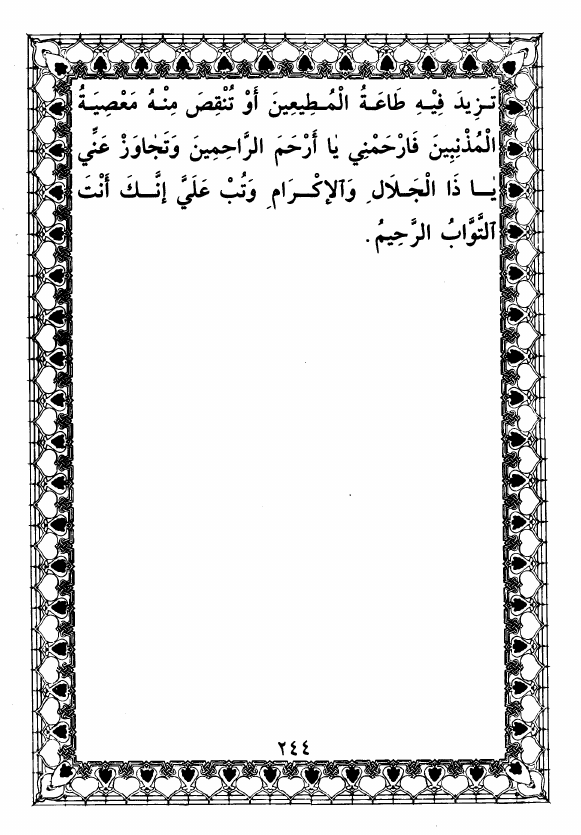 تَزِيدَ فِيْهِ طَاعَةُ الْمُطِيعِينَ أَوْ تُنْقِصَ مِنْهُ مَعْصِيَةُ
الْمُذْنِبِينَ فَارْحَمْنِي يٰا أَرْحَمَ الرَّاحِمِينَ وَتَجٰاوَزْ عَنِّي
يٰا ذَا الْجَلَالِ وَالإِكْرَامِ وَتُبْ عَلَيَّ إِنَّكَ أَنْتَ
ٱلتَّوَّابُ الرَّحِيمُ.
٢٤٤